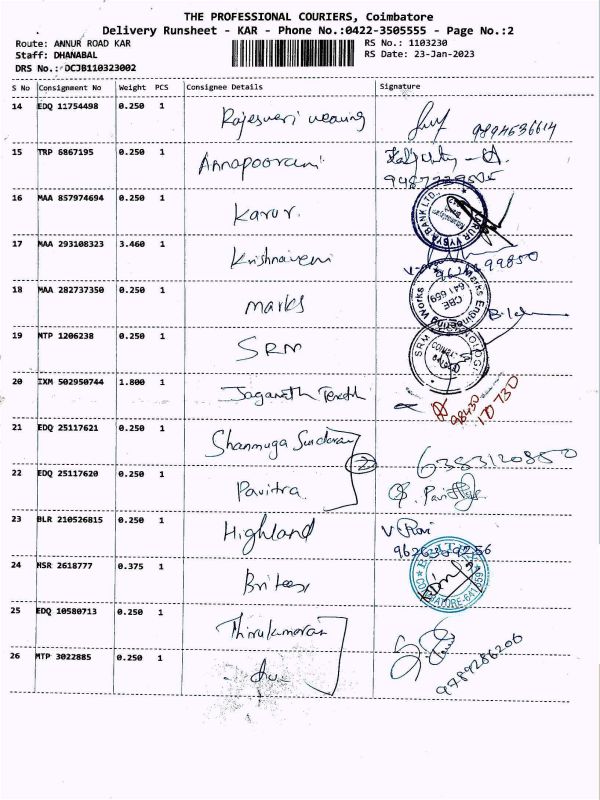 THE PROFESSIONAL COURIERS, Coimbatore
Delivery Runsheet - KAR - Phone No.:0422-3505555 - Page No.:2
Route: ANNUR ROAD KAR RS No.: 1103230
Staff: DHANABAL RS Date: 23-Jan-2023
DRS No.: DCJB110323002
S No Consignment No Weight PCS Consignee Details Signature
14 EDQ 11754498 0.250 1 Rajesweri weaving 9894636614
15 TRP 6867195 0.250 1 Annapoorani
16 MAA 857974694 0.250 1 Karur. KARUR VYSYA BANK LTD.,
17 MAA 293108323 3.460 1 Krishnaveni 99850
18 MAA 282737350 0.250 1 marks Marks Engineering Works CBE 641 659
19 MTP 1206238 0.250 1 SRM SRM
20 IXM 502950744 1.800 1 Jaganath Textile 98430
170730
21 EDQ 25117621 0.250 1 Shanmuga Sundaram 6383120850
2
22 EDQ 25117620 0.250 1 Pavitra
23 BLR 210526815 0.250 1 Highland V Ravi
24 HSR 2618777 0.375 1 COIMBATORE-641659
25 EDQ 10580713 0.250 1 Thirukumaran
26 MTP 3022885 0.250 1 9789286200